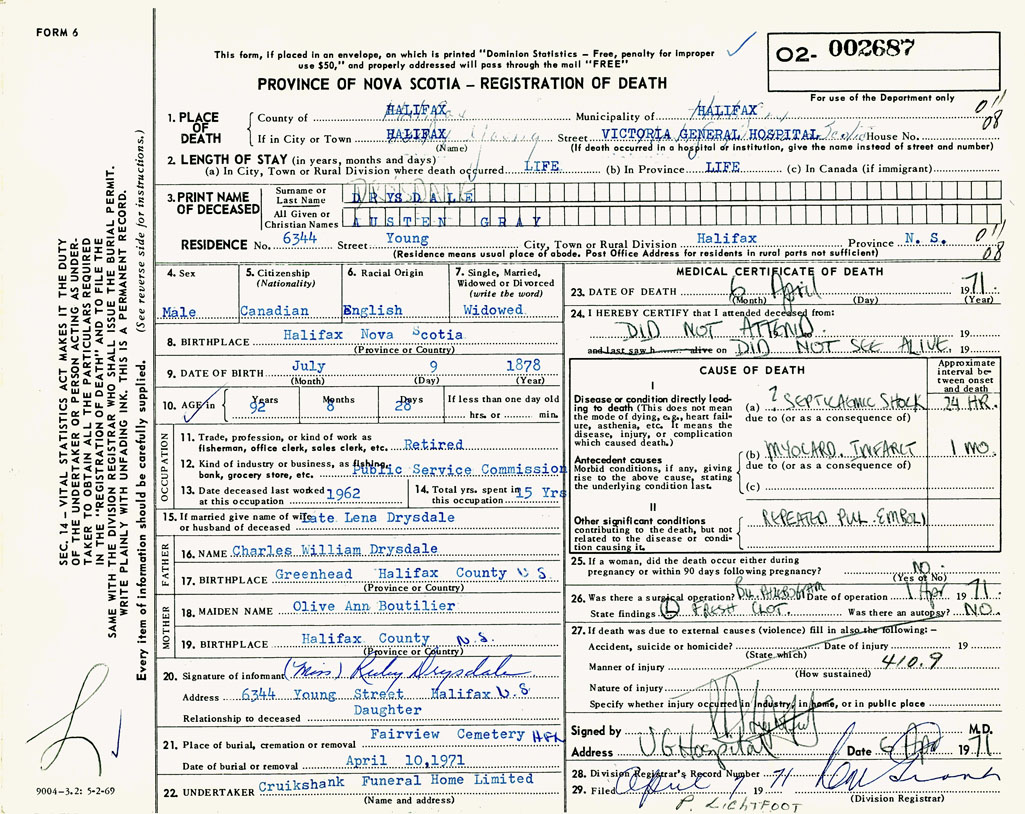 FORM 6
This form, if placed in an envelope, on which is printed "Dominion Statistics – Free, penalty for improper
use $50," and properly addressed will pass through the mail "FREE"
O2- 002687
PROVINCE OF NOVA SCOTIA – REGISTRATION OF DEATH
For use of the Department only
1. PLACE OF DEATH
County of HALIFAX Municipality of HALIFAX 011/08
If in City or Town HALIFAX Street VICTORIA GENERAL HOSPITAL House No.
(Name) (If death occurred in a hospital or institution, give the name instead of street and number)
2. LENGTH OF STAY (in years, months and days)
(a) In City, Town or Rural Division where death occurred LIFE (b) In Province LIFE (c) In Canada (if immigrant)
3. PRINT NAME OF DECEASED
Surname or Last Name DRYSDALE
All Given or Christian Names AUSTEN GRAY
RESIDENCE No. 6344 Street Young City, Town or Rural Division Halifax Province N. S. 011/08
(Residence means usual place of abode. Post Office Address for residents in rural parts not sufficient)
4. Sex
Male
5. Citizenship (Nationality)
Canadian
6. Racial Origin
English
7. Single, Married, Widowed or Divorced (write the word)
Widowed
8. BIRTHPLACE Halifax Nova Scotia
(Province or Country)
9. DATE OF BIRTH July 9 1878
(Month) (Day) (Year)
10. AGE in Years 92 Months 8 Days 28 If less than one day old
hrs. or min.
OCCUPATION
11. Trade, profession, or kind of work as fisherman, office clerk, sales clerk, etc. Retired
12. Kind of industry or business, as fishing, bank, grocery store, etc. Public Service Commission
13. Date deceased last worked at this occupation 1962
14. Total yrs. spent in this occupation 15 Yrs
15. If married give name of wife or husband of deceased Late Lena Drysdale
FATHER
16. NAME Charles William Drysdale
17. BIRTHPLACE Greenhead Halifax County N S
(Province or Country)
MOTHER
18. MAIDEN NAME Olive Ann Boutilier
19. BIRTHPLACE Halifax County N.S.
(Province or Country)
20. Signature of informant (Miss) Ruby Drysdale
Address 6344 Young Street Halifax N.S
Relationship to deceased Daughter
21. Place of burial, cremation or removal Fairview Cemetery Hfx
Date of burial or removal April 10,1971
22. UNDERTAKER Cruikshank Funeral Home Limited
(Name and address)
MEDICAL CERTIFICATE OF DEATH
23. DATE OF DEATH 6 April 1971
(Month) (Day) (Year)
24. I HEREBY CERTIFY that I attended deceased from:
DID NOT ATTEND 19
and last saw h alive on DID NOT SEE ALIVE 19
CAUSE OF DEATH
Approximate interval between onset and death
I
Disease or condition directly leading to death (This does not mean the mode of dying, e.g., heart failure, asthenia, etc. It means the disease, injury, or complication which caused death.)
(a) ? SEPTICAEMIC SHOCK 24 HR.
due to (or as a consequence of)
Antecedent causes
Morbid conditions, if any, giving rise to the above cause, stating the underlying condition last.
(b) MYOCARD. INFARCT 1 MO.
due to (or as a consequence of)
(c)
II
Other significant conditions contributing to the death, but not related to the disease or condition causing it.
REPEATED PUL. EMBOLI
25. If a woman, did the death occur either during pregnancy or within 90 days following pregnancy? NO.
(Yes or No)
26. Was there a surgical operation? Date of operation 1 Apr 1971
State findings (L) FRESH CLOT. Was there an autopsy? NO.
27. If death was due to external causes (violence) fill in also the following: –
Accident, suicide or homicide? Date of injury 19
(State which)
Manner of injury 410.9
(How sustained)
Nature of injury
Specify whether injury occurred in industry, in home, or in public place
Signed by M.D.
Address V G Hospital Date 6 Apr 1971
28. Division Registrar's Record Number
29. Filed April 7 1971
(Division Registrar)
P. LIGHTFOOT
SEC. 14 – VITAL STATISTICS ACT MAKES IT THE DUTY
OF THE UNDERTAKER OR PERSON ACTING AS UNDER-
TAKER TO OBTAIN ALL THE PARTICULARS REQUIRED
IN THE "REGISTRATION OF DEATH" AND TO FILE THE
SAME WITH THE DIVISION REGISTRAR WHO SHALL ISSUE THE BURIAL PERMIT.
WRITE PLAINLY WITH UNFADING INK. THIS IS A PERMANENT RECORD.
Every item of information should be carefully supplied. (See reverse side for instructions.)
9004-3.2: 5-2-69